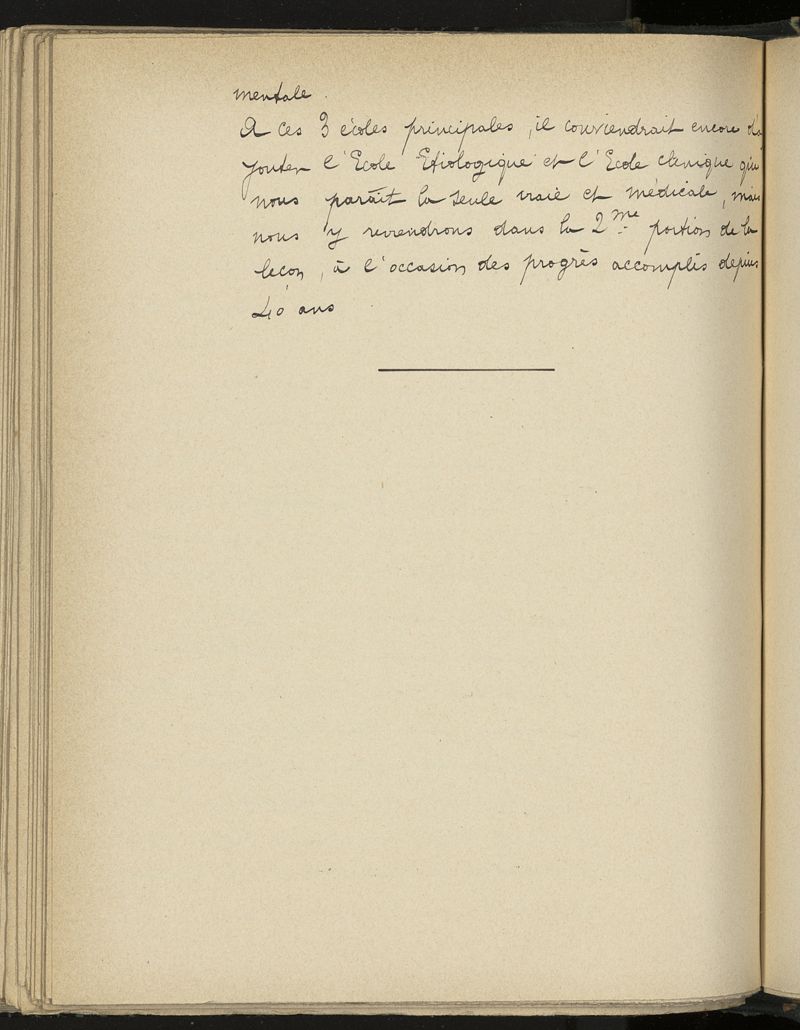 mentale.
A ces 3 écoles principales, il conviendrait encore d'a
jouter l'Ecole Etiologique et l'Ecole clinique qui
nous paraît la seule vraie et médicale, mais
nous y reviendrons dans la 2me portion de la
leçon, à l'occasion des progrès accomplis depuis
40 ans